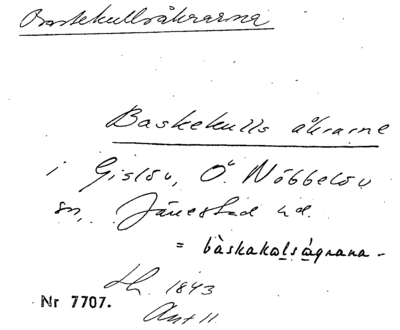 Baskekullsåkrarna
Baskekulls åkrarne
i Gislöv, Ö. Nöbbelöv
sn, Järrestad hd.
= bàskakalságrana-
lh. 1843
Akt 11
Nr 7707.